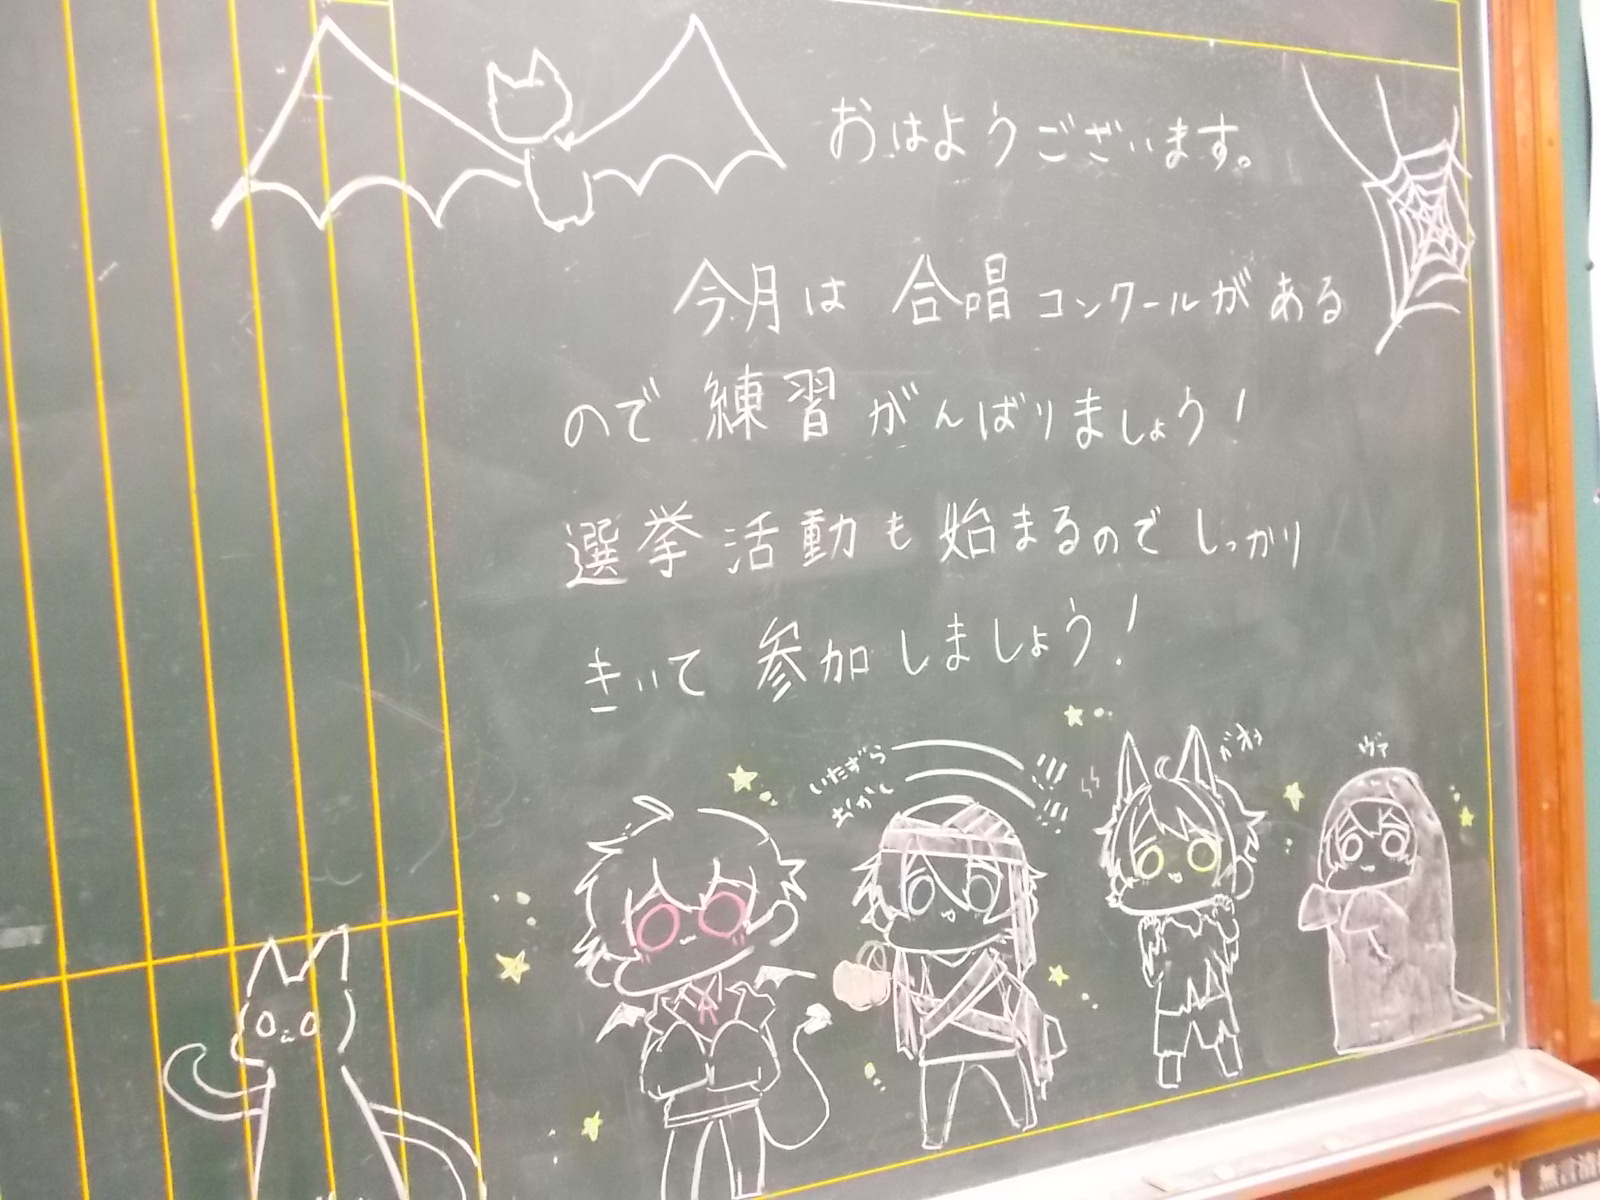 おはようございます。
今月は合唱コンクールがある
ので練習がんばりましょう!
選挙活動も始まるのでしっかり
きいて参加しましょう!
いたずら
お
がお
ヴァ
無言清